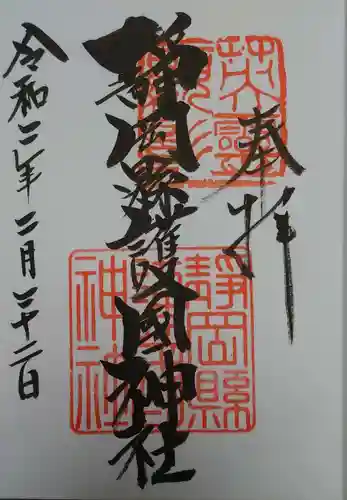 奉拝
静岡縣護國神社
令和二年二月二十二日
英靈
顕彰
静岡縣
護國
神社